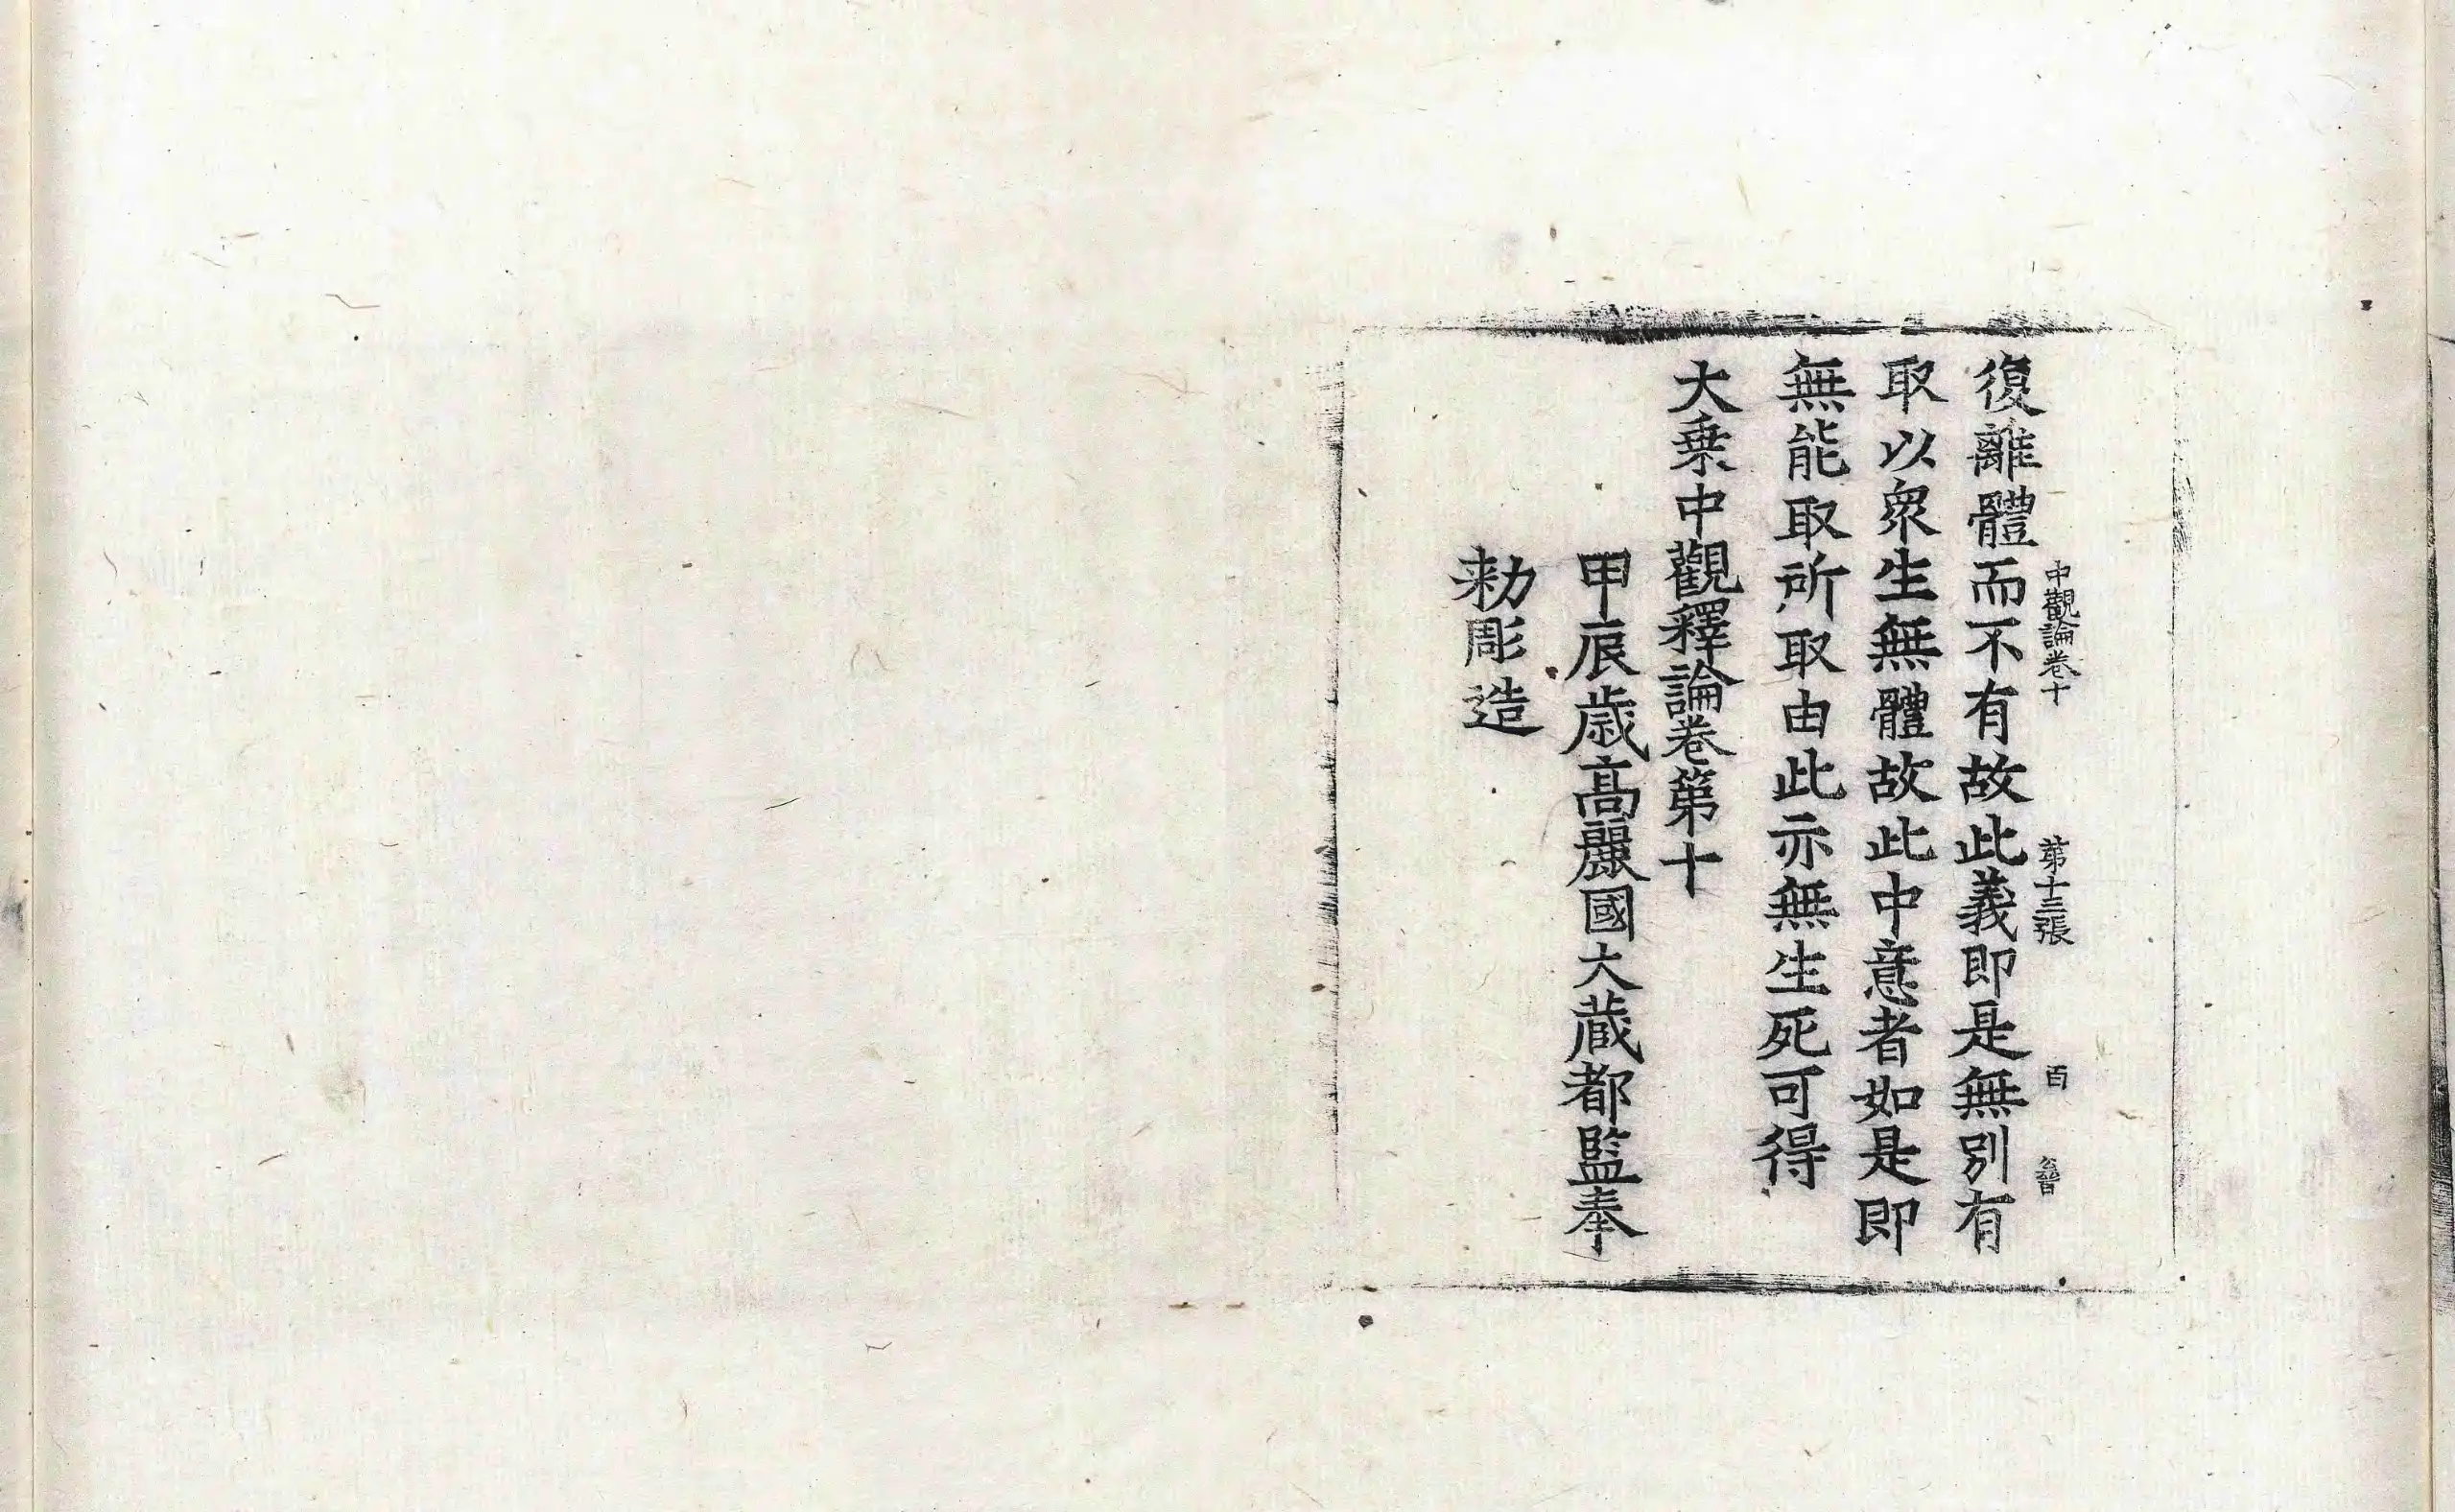 中觀論卷十 第十三張 百
復離體而不有故此義即是無別有
取以衆生無體故此中意者如是即
無能取所取由此亦無生死可得
大乗中觀釋論卷第十
甲辰歲高麗國大藏都監奉
勑彫造